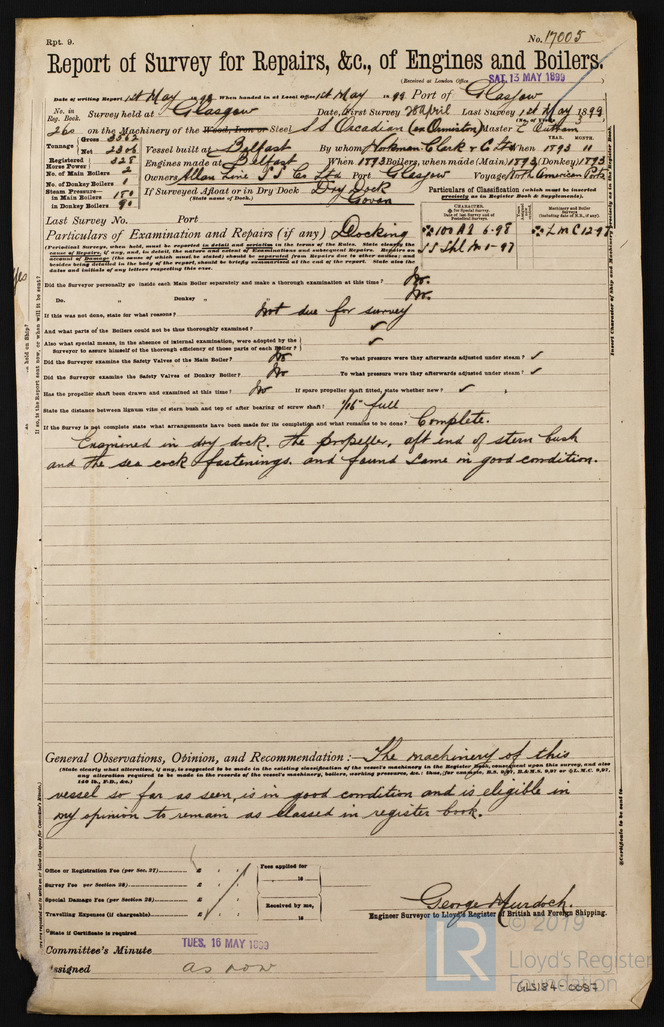 Rpt. 9.
No. 17005
Report of Survey for Repairs, &c., of Engines and Boilers.
(Received at London Office
SAT. 13 MAY 1899
Date of writing Report 1st May 1899 When handed in at Local Office 1st May 1899 Port of Glasgow
No. in Reg. Book. Survey held at Glasgow Date, First Survey 28 April Last Survey 1st May 1899
260 on the Machinery of the Wood, Iron or Steel S S Orcadian (ex Ormiston) Master
Tonnage Gross 3562 Net 2306
Vessel built at Belfast By whom Workman Clark & Co Ltd When 1893 11
YEAR. MONTH.
Registered Horse Power 328
Engines made at Belfast When 1893 Boilers, when made (Main) 1893 (Donkey) 1893
No. of Main Boilers 2
Owners Allan Line S S Co Ltd Port Glasgow Voyage North American Ports
No. of Donkey Boilers 1
If Surveyed Afloat or in Dry Dock Dry Dock
(State name of Dock.) Govan
Steam Pressure in Main Boilers 180
in Donkey Boilers 90
Particulars of Classification (which must be inserted precisely as in Register Book & Supplements).
Last Survey No. Port
Particulars of Examination and Repairs (if any) Docking
100 A1 6-98
LMC 12-97
(Periodical Surveys, when held, must be reported in detail and seriatim in the terms of the Rules. State clearly the cause of Repairs, if any, and, in detail, the nature and extent of Examinations and subsequent Repairs. Repairs on account of Damage (the cause of which must be stated) should be separated from Repairs due to other causes; and besides being detailed in the body of the report, should be briefly summarised at the end of the report. State also the dates and initials of any letters respecting this case.
Yes
Did the Surveyor personally go inside each Main Boiler separately and make a thorough examination at this time? No.
Do. " Donkey " No.
If this was not done, state for what reasons? Not due for survey
And what parts of the Boilers could not be thus thoroughly examined? ✓
Also what special means, in the absence of internal examination, were adopted by the Surveyor to assure himself of the thorough efficiency of those parts of each Boiler? ✓
Did the Surveyor examine the Safety Valves of the Main Boiler? No To what pressure were they afterwards adjusted under steam? ✓
Did the Surveyor examine the Safety Valves of Donkey Boiler? No To what pressure were they afterwards adjusted under steam? ✓
Has the propeller shaft been drawn and examined at this time? No If spare propeller shaft fitted, state whether new? ✓
State the distance between lignum vitæ of stern bush and top of after bearing of screw shaft? 1/16" full
If the Survey is not complete state what arrangements have been made for its completion and what remains to be done? Complete.
Examined in dry dock. the propeller, aft end of stern bush
and the sea cock fastenings. and found same in good condition.
General Observations, Opinion, and Recommendation:— The machinery of this
(State clearly what alteration, if any, is suggested to be made in the existing classification of the vessel's machinery in the Register Book, consequent upon this survey, and also any alteration required to be made in the records of the vessel's machinery, boilers, working pressures, &c.: thus, for example, B.S. 9,97, B.&M.S. 9,97 or L.M.C. 9,97, 140 lb., F.D., &c.)
vessel so far as seen, is in good condition and is eligible in
my opinion to remain as classed in register book.
Office or Registration Fee (per Sec. 27) £
Survey Fee per Section 28) £
Special Damage Fee (per Section 28) £
Travelling Expenses (if chargeable) £
Fees applied for
18
Received by me,
18
George Murdoch.
Engineer Surveyor to Lloyd's Register of British and Foreign Shipping.
State if Certificate is required
Committee's Minute TUES. 16 MAY 1899
Assigned as now
LR
© 2019
Lloyd's Register
Foundation
GLS184-0087